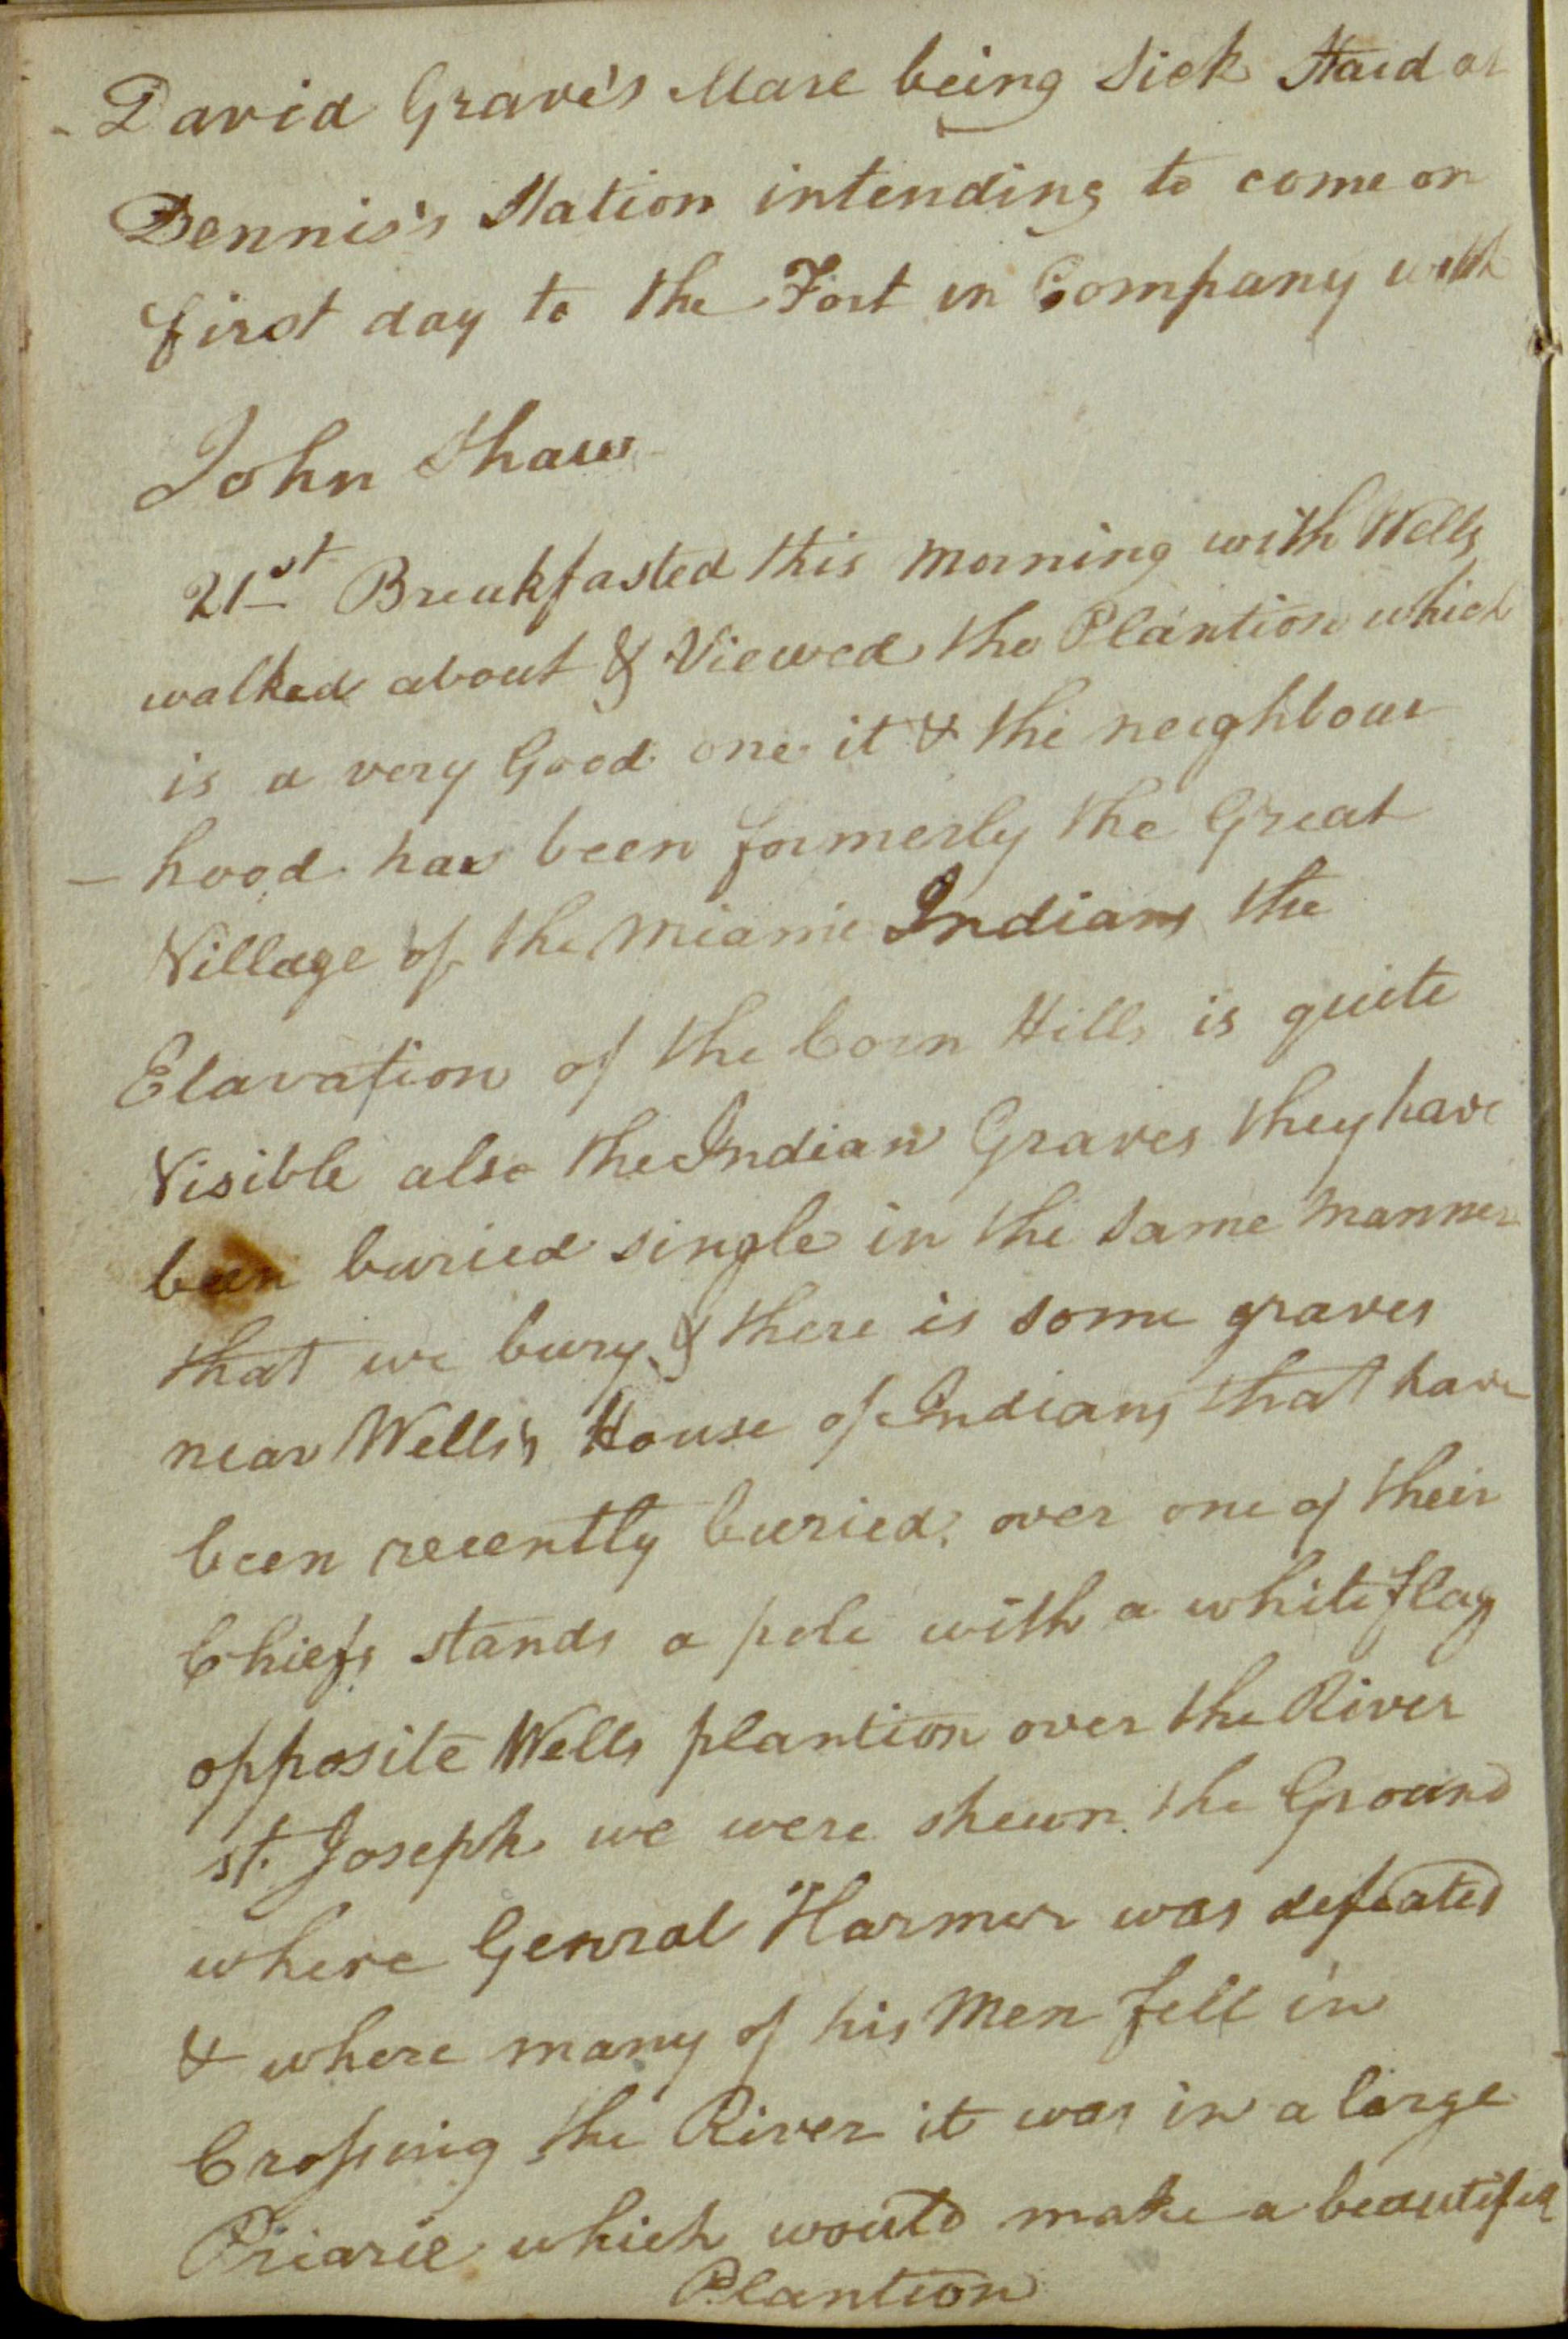 - David Grave's Mare being Sick Staid at
Dennis's Station intending to come on
first day to the Fort in Company with
John Shaw
21st Breakfasted this morning with Wells
walked about & Viewed the Plantion which
is a very Good one it & the neighbour
- hood has been formerly the Great
Village of the Miamie Indians the
Elavation of the Corn Hills is quite
Visible also the Indian Graves they have
been buried single in the same manner
that we bury & there is some graves
near Wells's House of Indians that have
been recently buried, over one of their
Chiefs stands a pole with a white flag
opposite Wells plantion over the River
st. Joseph we were shewn the Ground
where Genral Harmer was defeated
& where many of his Men fell in
Crossing the River it was in a large
Priarie which would make a beautiful
Plantion